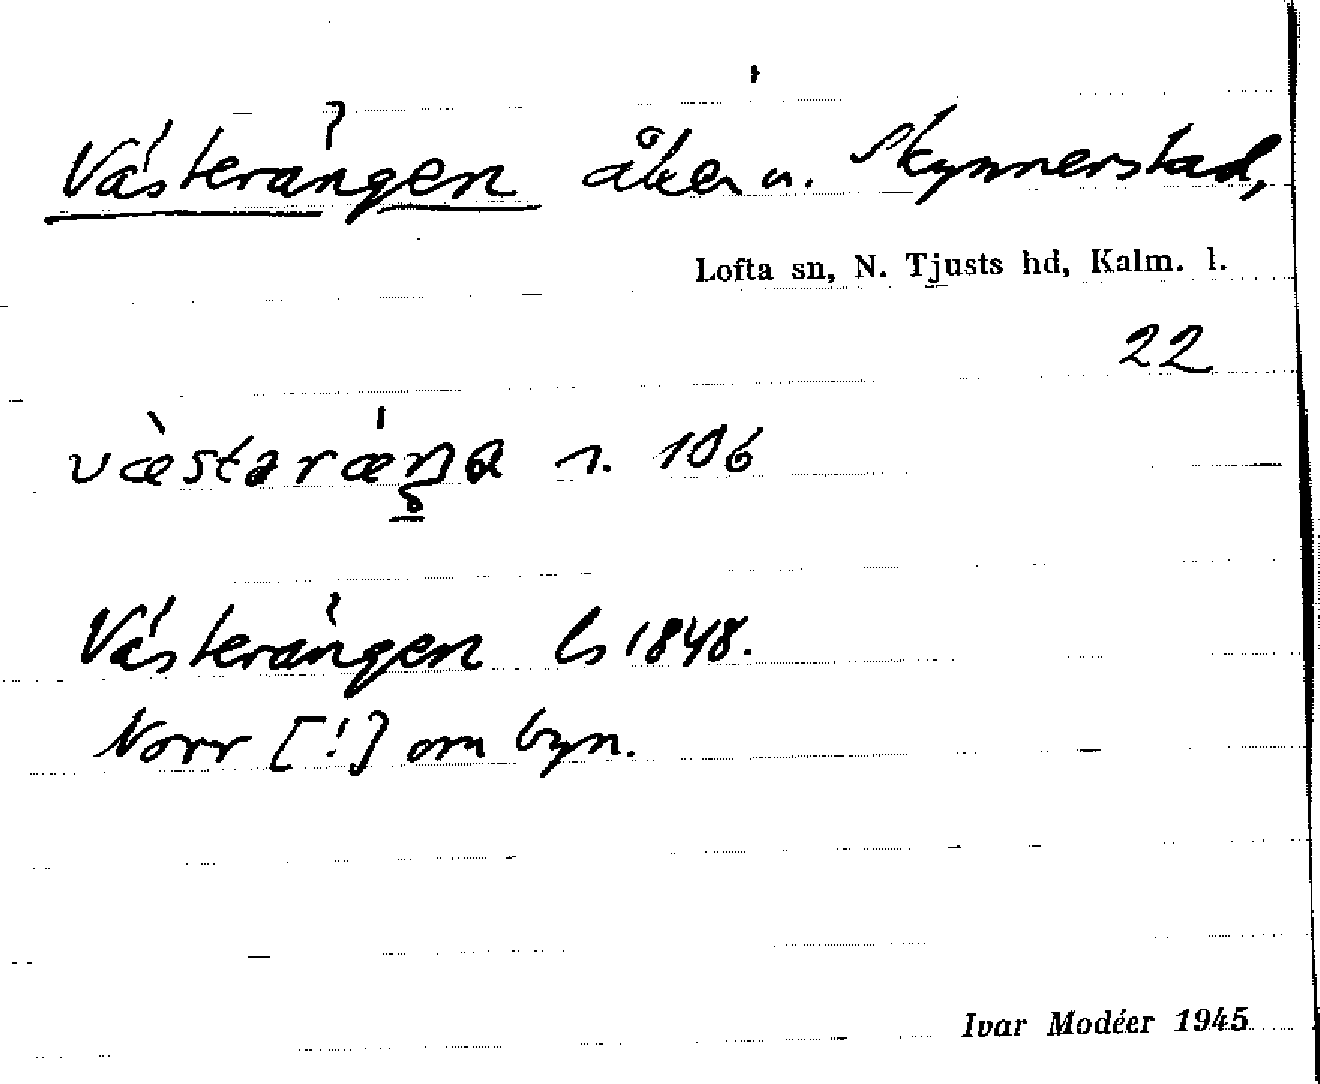 Västerängen åker u. Skynnerstad,
Lofta sn, N. Tjusts hd, Kalm. l.
22
r. 106
Västerängen ls 1848.
Norr [!] om byn.
Ivar Modéer 1945